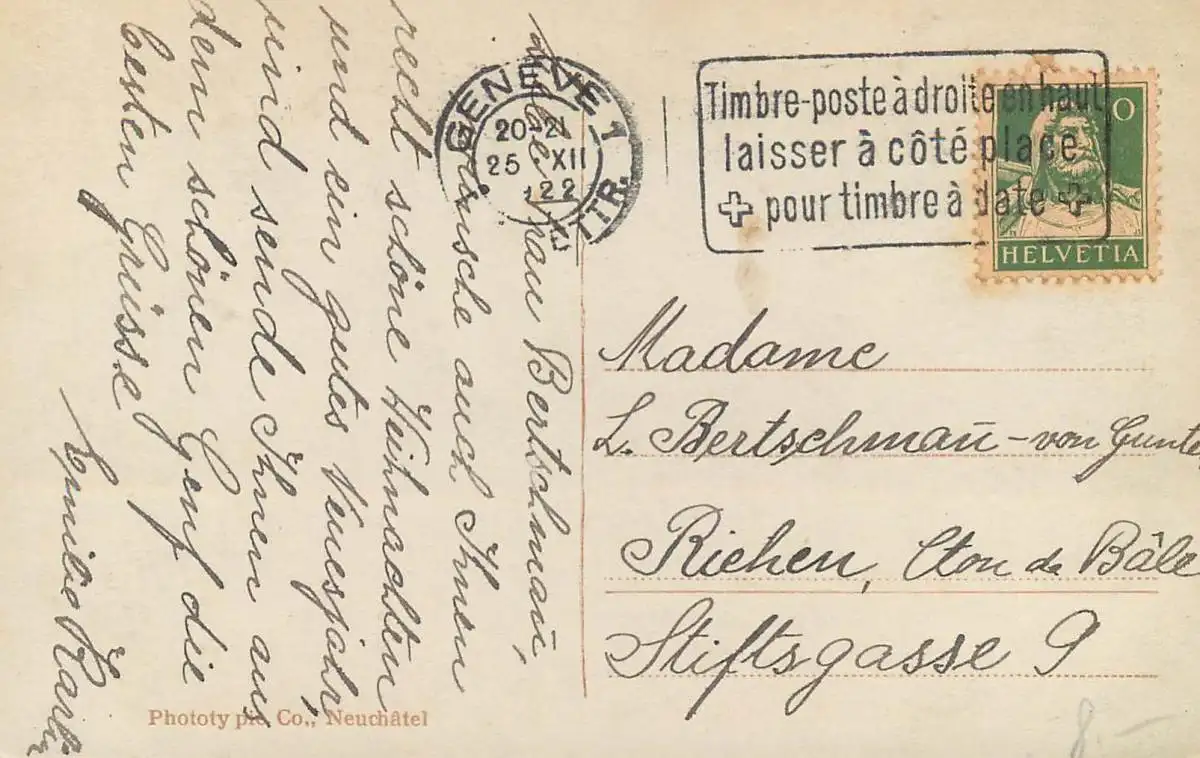 Liebe Frau Bertschmaū,
Wünsche auch Ihnen
recht schöne Weihnachten
und ein gutes Neuesjahr,
und sende Ihnen aus
dem schönen Genf die
besten Grüsse
Emilie
GENÈVE 1
20-21
25 XII
22
Timbre-poste à droite en haut
laisser à côté place
pour timbre à date
0
HELVETIA
Madame
L. Bertschmaū - von Gunte
Riehen, Cton de Bâle
Stiftsgasse 9
Phototypie Co., Neuchâtel
8.